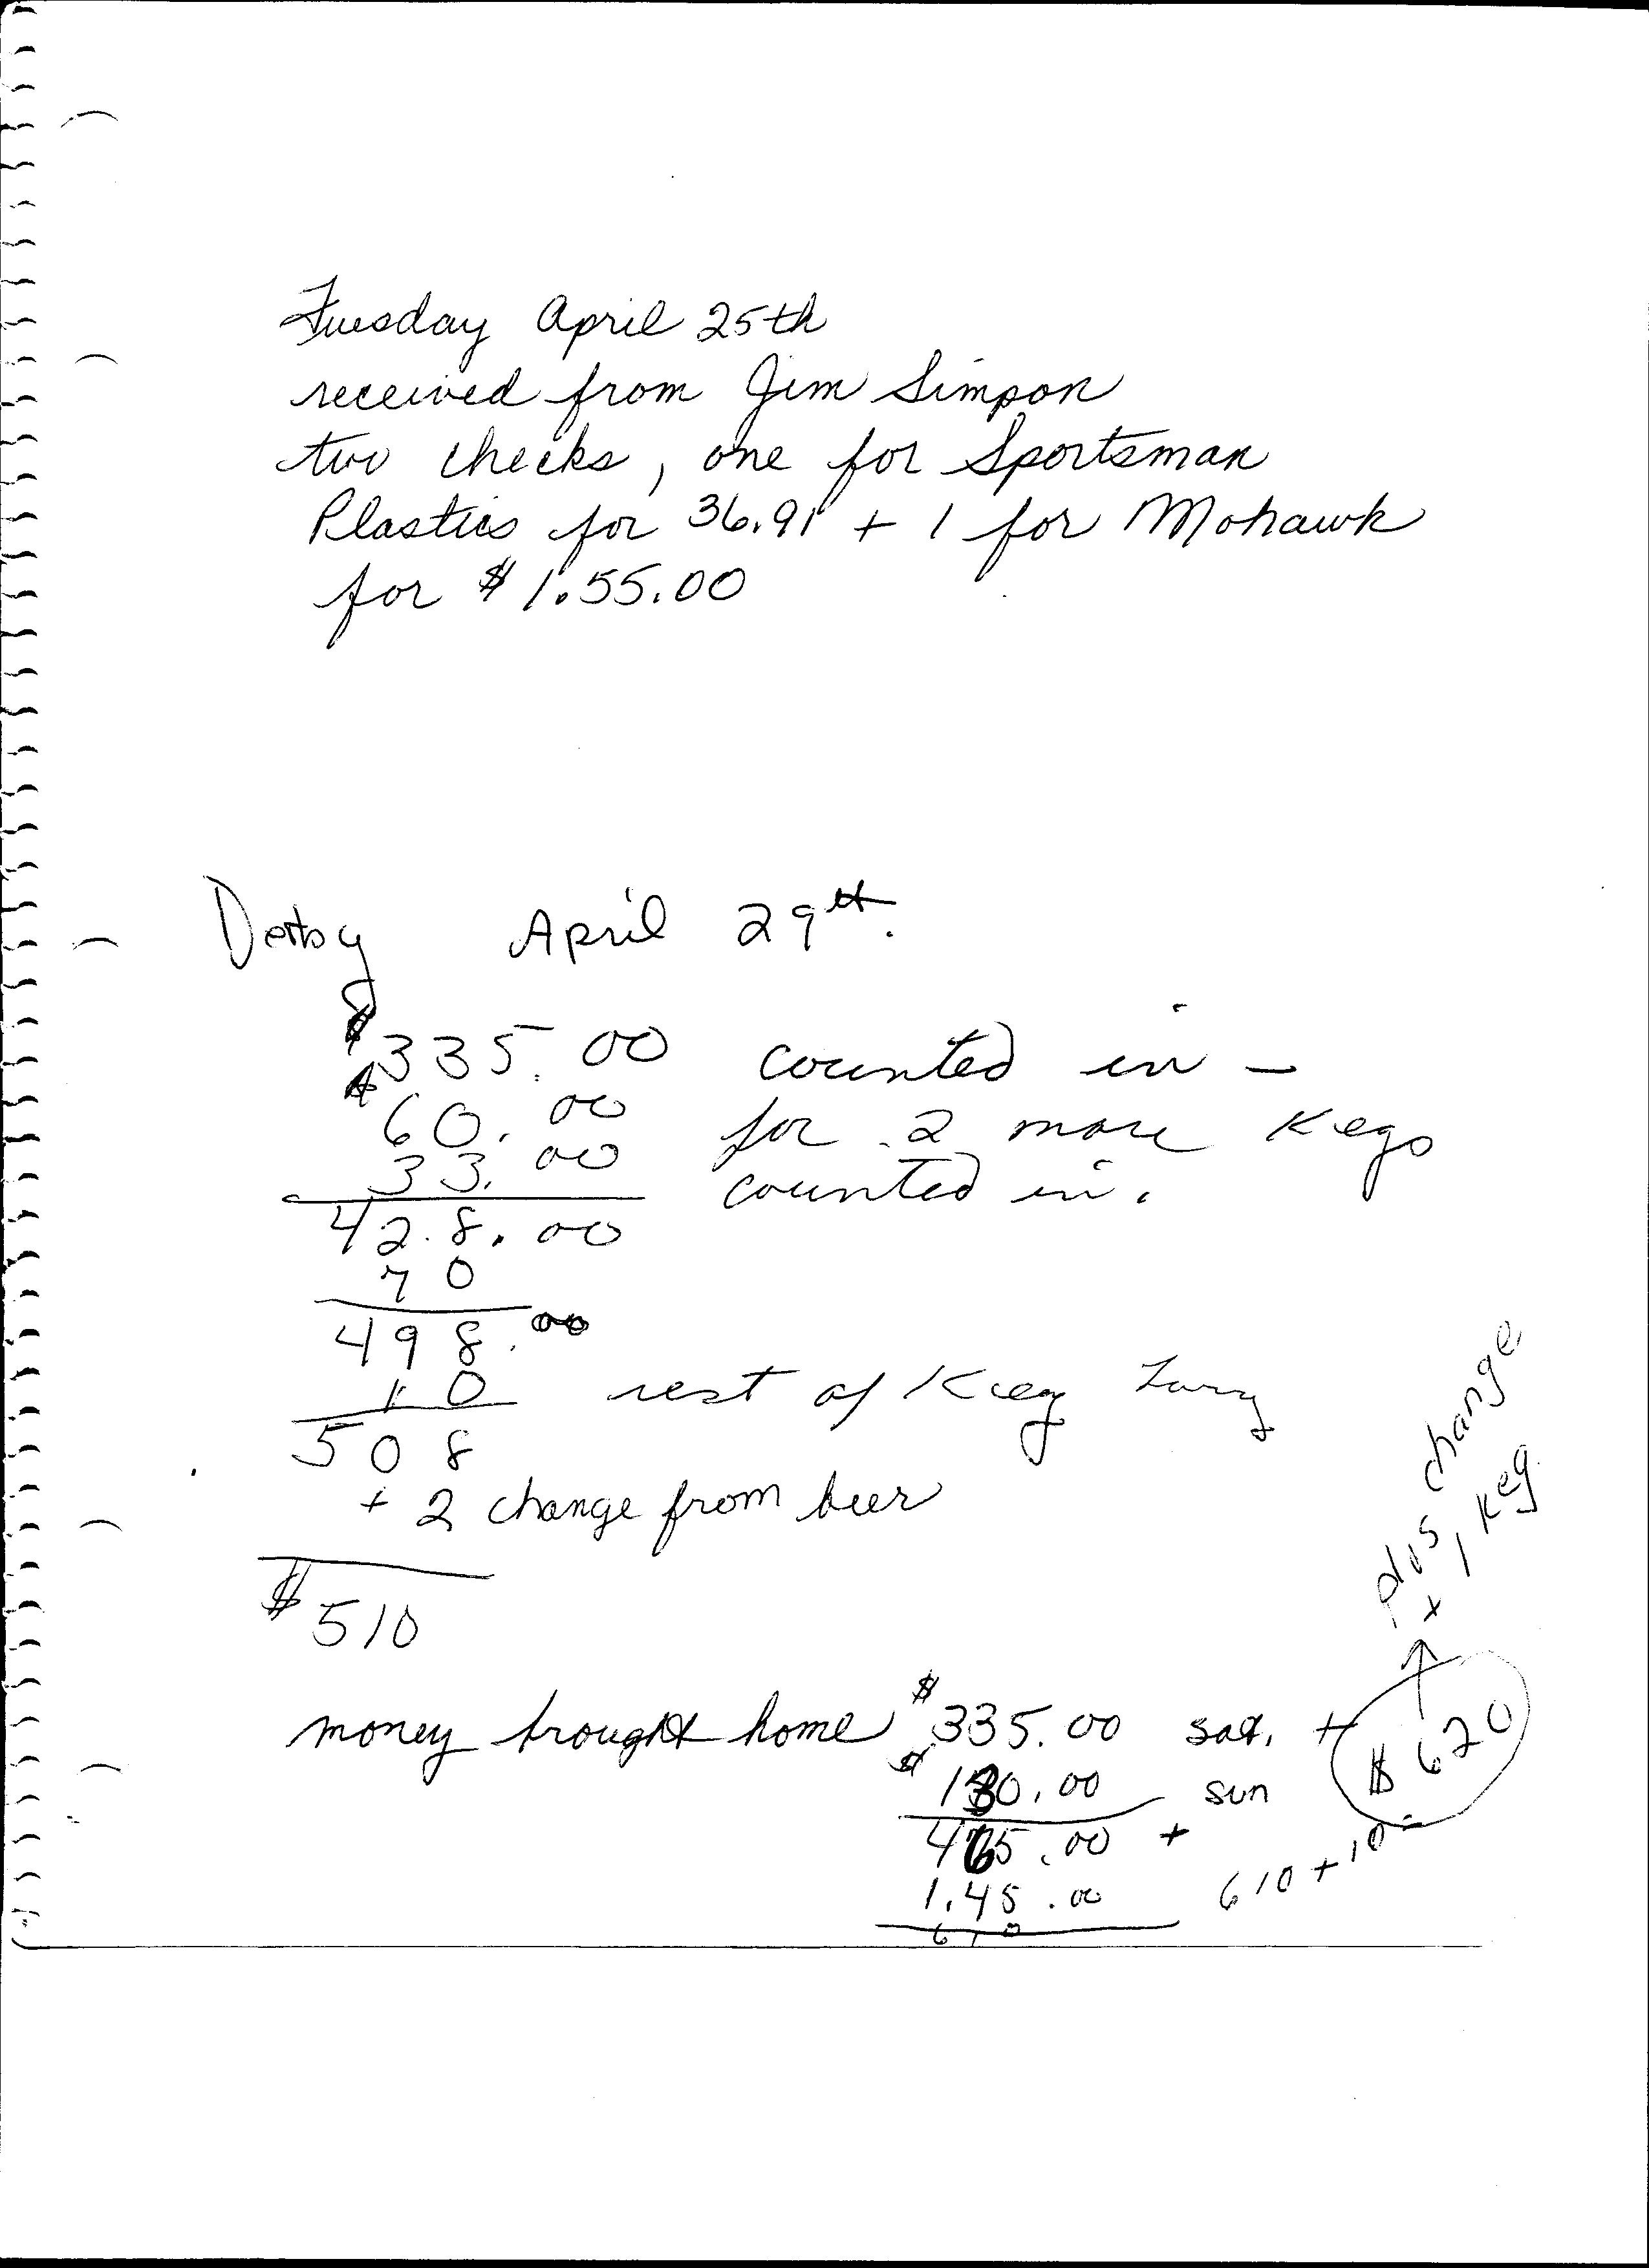 Tuesday April 25th
received from Jim Simpon
two checks, one for Sportsman
Plastics for 36.91 + 1 for Mohawk
for $ 1.55.00
Derby April 29th.
$335.00 counted in -
60.00 for 2 more Kegs
33.00 counted in.
428.00
70
498.00
10 rest of Keg
508
+ 2 change from beer
$ 510
money brought home $335.00 sat. +
$130.00 sun
465.00 +
1.45.00
610
610 + 10 =
$ 620
plus change
+ 1 keg.